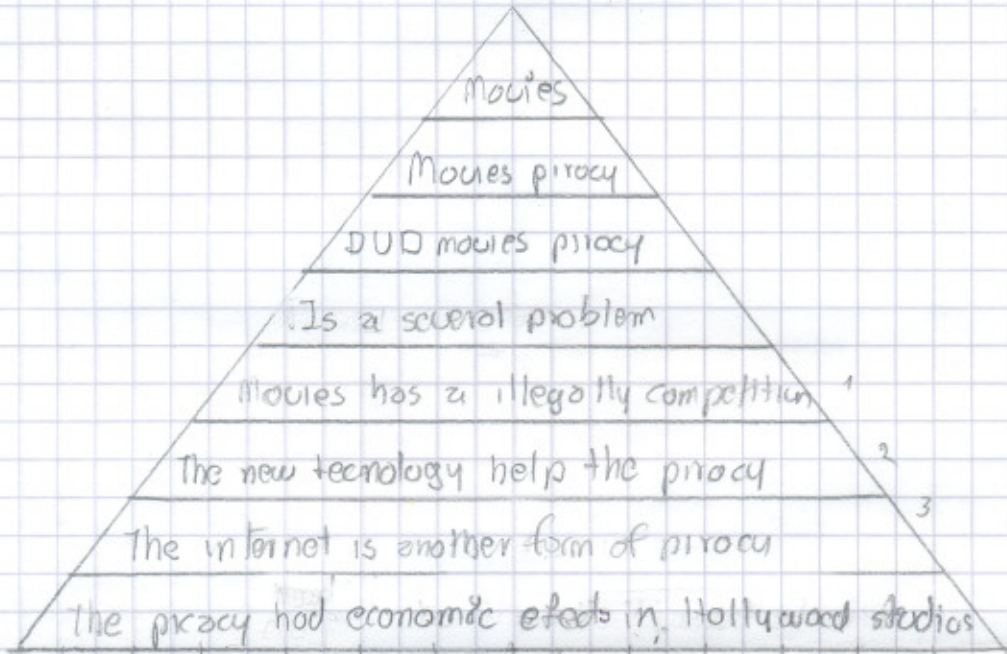 Movies
Movies piracy
DVD movies piracy
Is a several problem
Movies has a illegally competition 1
The new tecnology help the piracy 2
3
The internet is another form of piracy
The piracy had economic efects in Hollywood studios